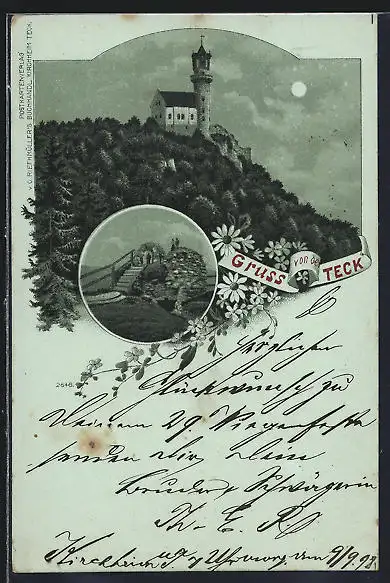 POSTKARTENVERLAG
v. C. RIETHMÜLLER'S BUCHHANDL. KIRCHHEIM TECK.
Gruss von der TECK
2646.
Fröhlichen
Glückwunsch zu
Deinem 29. Wiegenfeste
senden dir Dein
Bruder & Schwägerin
Th. E. R.
Kirchheim u/T. 9/9.98.